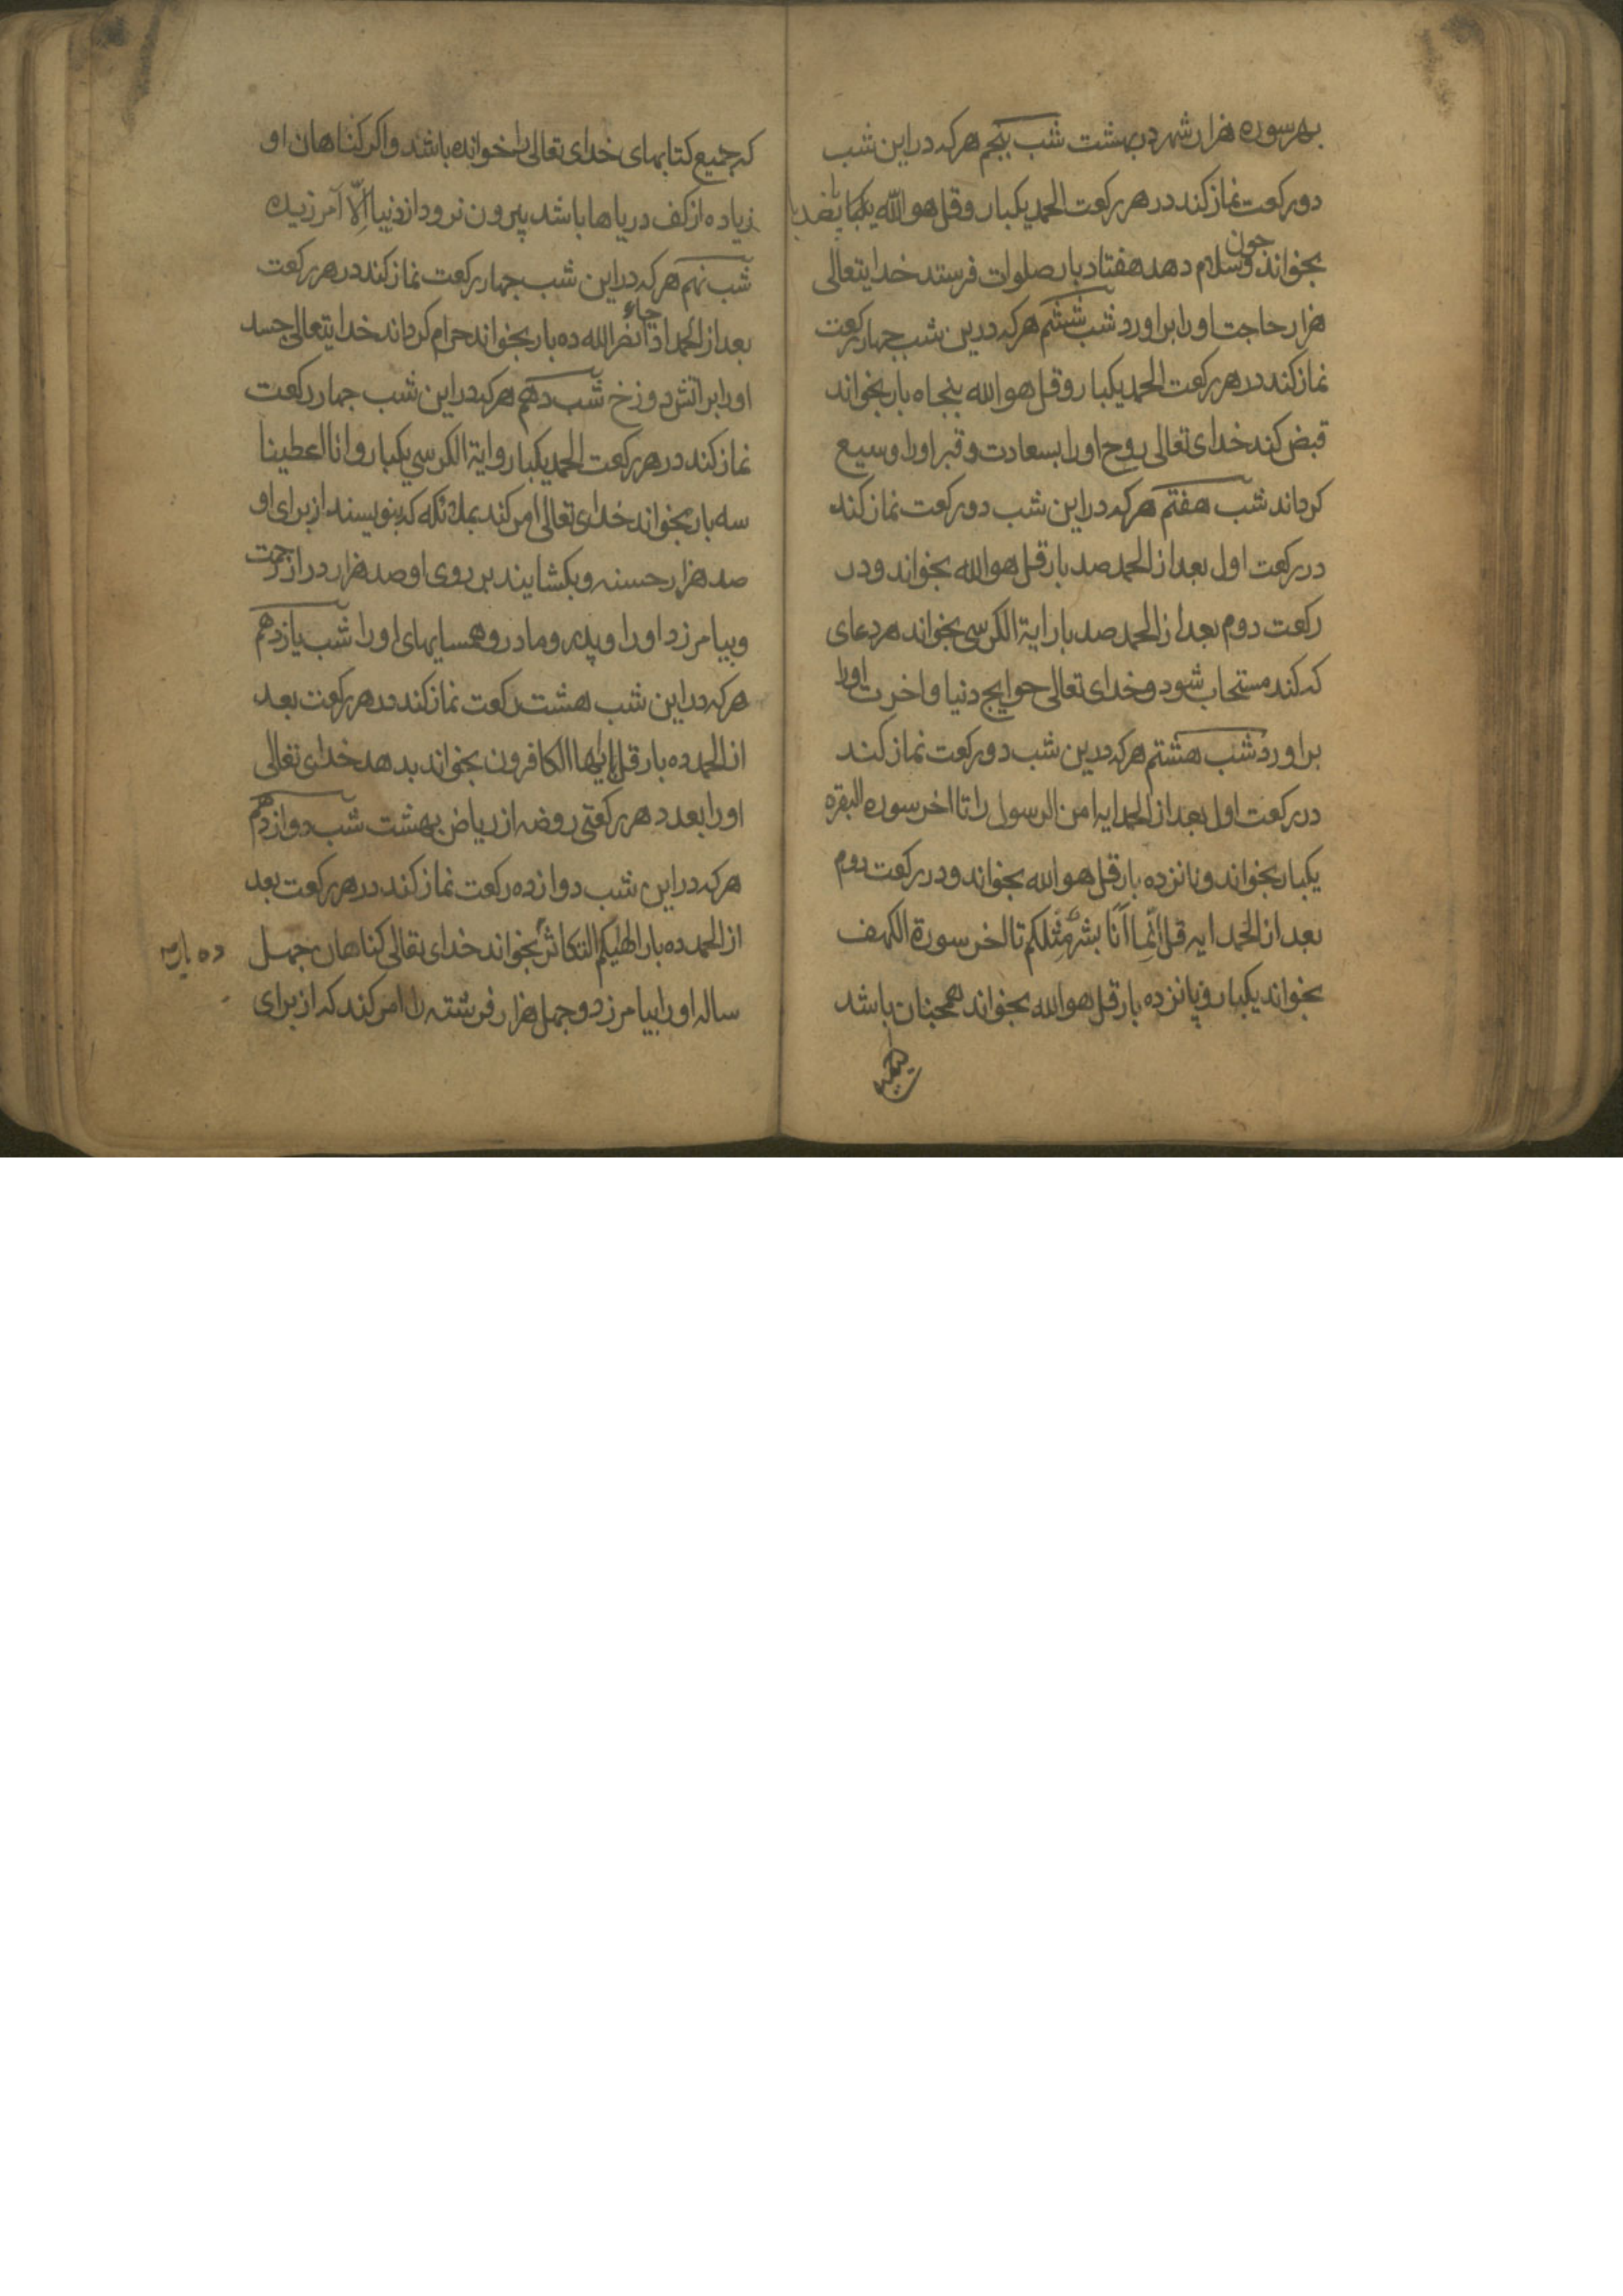 بهر سوره هزار شهر در بهشت شب پنجم هرکه در این شب
دو رکعت نماز کند در هر رکعت الحمد یکبار و قل هو الله
بخواند و چون سلام دهد هفتاد بار صلوات فرستد خدایتعالی
هزار حاجت او را براورد شب ششم هرکه درین شب چهار رکعت
نماز کند در هر رکعت الحمد یکبار و قل هو الله پنجاه بار بخواند
قبض کند خدای تعالی روح او را بسعادت و قبر او را وسیع
کرداند شب هفتم هرکه در این شب دو رکعت نماز کند
در رکعت اول بعد از الحمد صد بار قل هو الله بخواند و در
رکعت دوم بعد از الحمد صد بار ایة الکرسی بخواند هر دعای
که کند مستجاب شود و خدای تعالی حوایج دنیا و اخرت او را
براورد شب هشتم هرکه درین شب دو رکعت نماز کند
در رکعت اول بعد از الحمد ایه امن الرسول را تا اخر سوره البقره
یکبار بخواند و پانزده بار قل هو الله بخواند و در رکعت دوم
بعد از الحمد ایه قل اِنَّما اَنَا بشرٌ مِثلکم تا اخر سورة الکهف
بخواند یکبار و پانزده بار قل هو الله بخواند همچنان باشد
که جمیع کتابهای خدای تعالی را خوانده باشد و اکر کناهان او
زیاده از کف دریاها باشد بیرون نرود از دنیا اِلّا آمرزیده
شب نهم هرکه در این شب چهار رکعت نماز کند در هر رکعت
بعد از الحمد اذا جاء نصر الله ده بار بخواند حرام کرداند خدایتعالی جسد
او را بر اتش دوزخ شب دهم هرکه در این شب چهار رکعت
نماز کند در هر رکعت الحمد یکبار و ایة الکرسی یکبار و انا اعطینا
سه بار بخواند خدای تعالی امر کند بملائکه که بنویسند از برای او
صد هزار حسنه و بکشایند بر روی او صد هزار در از رحمت
و بیامرزد او را و پدر و مادر و همسایهای او را شب یازدهم
هرکه در این شب هشت رکعت نماز کند در هر رکعت بعد
از الحمد ده بار قل یا ایها الکافرون بخواند بدهد خدای تعالی
او را بعدد هر رکعتی روضه از ریاض بهشت شب دوازدهم
هرکه در این شب دوازده رکعت نماز کند در هر رکعت بعد
از الحمد ده بار الهٰیکم التکاثر بخواند خدای تعالی کناهان چهل
ساله او را بیامرزد و چهل هزار فرشته را امر کند که از برای
ده بار